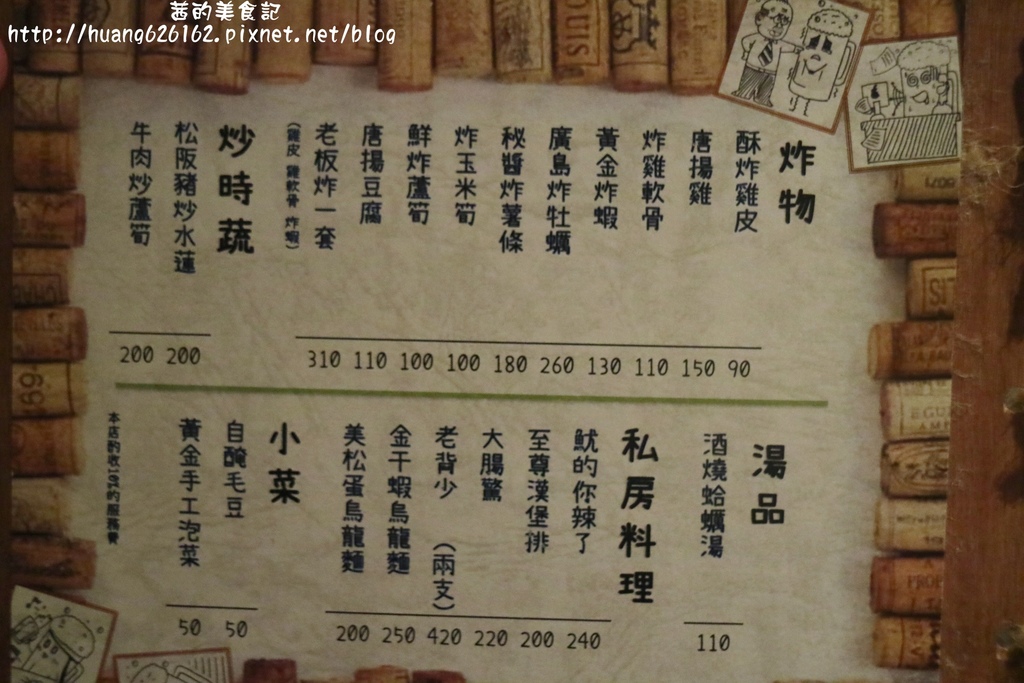 茜的美食記
http://huang626162.pixnet.net/blog
炸物
酥炸雞皮 90
唐揚雞 150
炸雞軟骨 110
黃金炸蝦 130
廣島炸牡蠣 260
秘醬炸薯條 180
炸玉米筍 100
鮮炸蘆筍 100
唐揚豆腐 110
老板炸一套 310
(雞皮 雞軟骨 炸蝦)
炒時蔬
松阪豬炒水蓮 200
牛肉炒蘆筍 200
湯品
酒燒蛤蠣湯 110
私房料理
魷的你辣了 240
至尊漢堡排 200
大腸驚 220
老背少 (兩支) 420
金干蝦烏龍麵 250
美松蛋烏龍麵 200
小菜
自醃毛豆 50
黃金手工泡菜 50
本店酌收10%的服務費